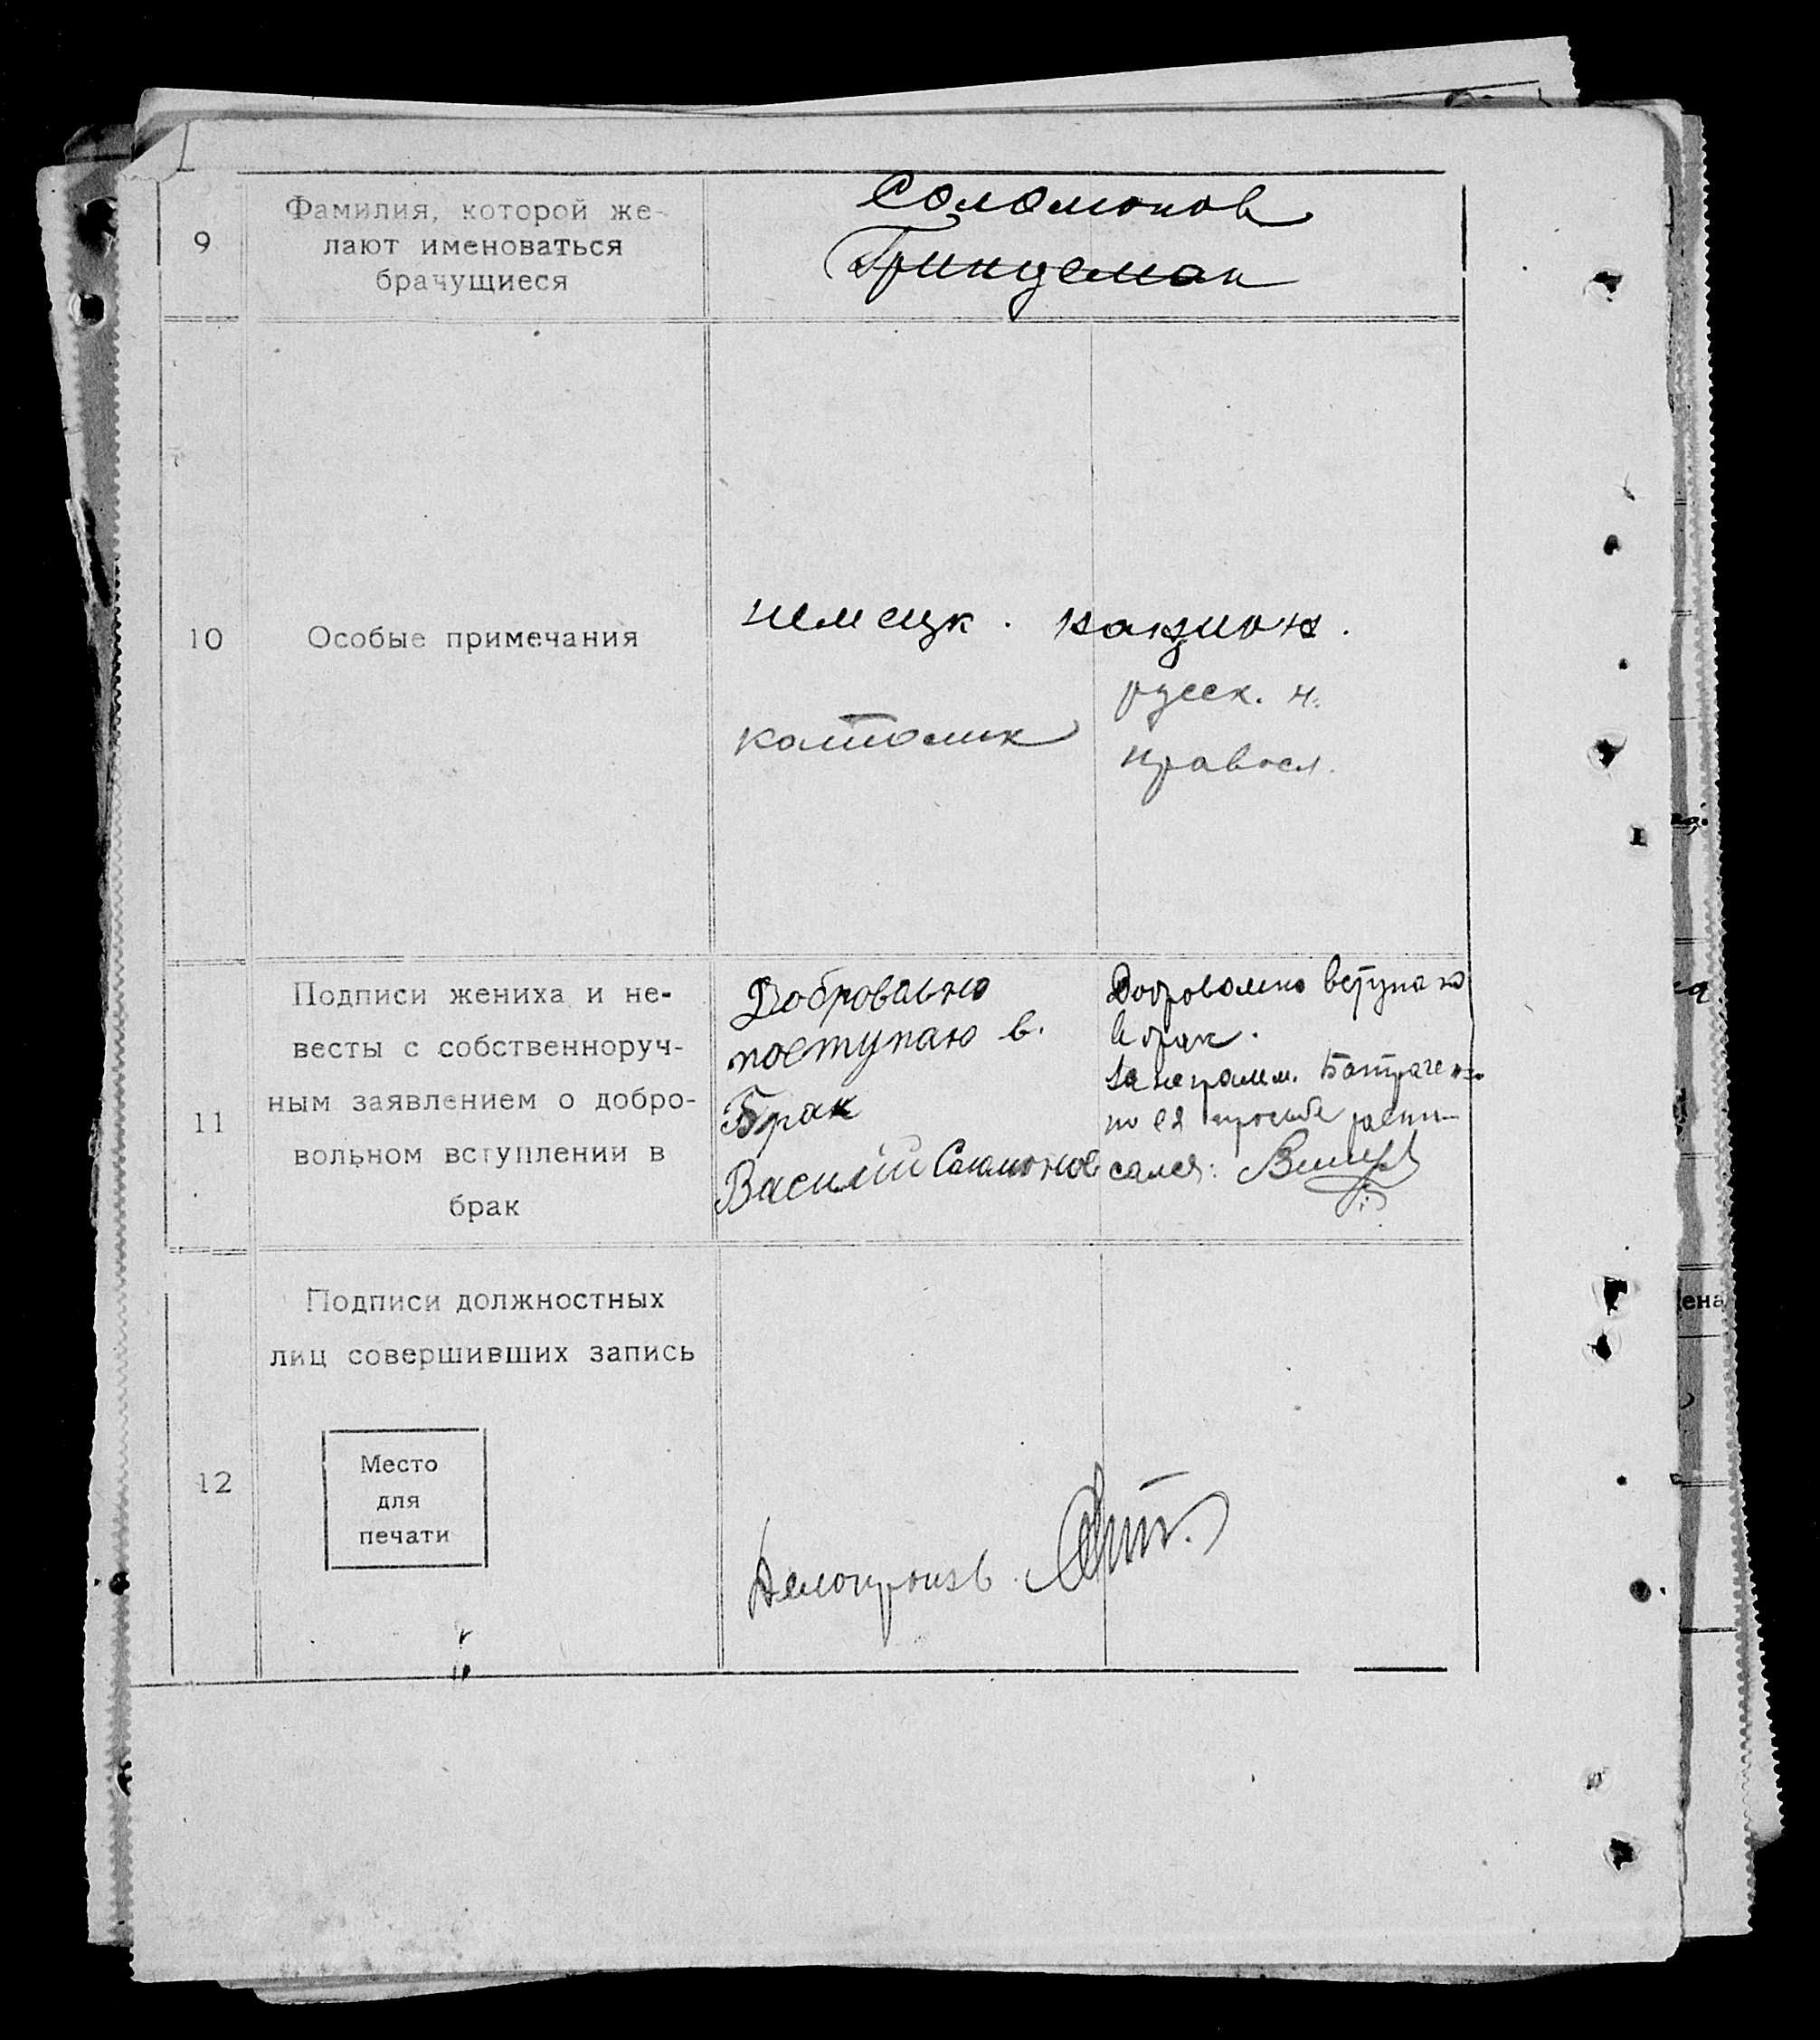 9
Фамилия, которой же-
лают именоваться
брачущиеся
Соломонов
Гринцеман
10
Особые примечания
немецк. национ.
русск. н.
католик
правосл.
11
Подписи жениха и не-
весты с собственноруч-
ным заявлением о добро-
вольном вступлении в
брак
Добровально
поступаю в.
Брак
Василий Саламонов
Добровольно вступаю
в брак.
За неграмм.
по её просьбе распи-
сался:
12
Подписи должностных
лиц совершивших запись
Место
для
печати
Делопроизв.
ена